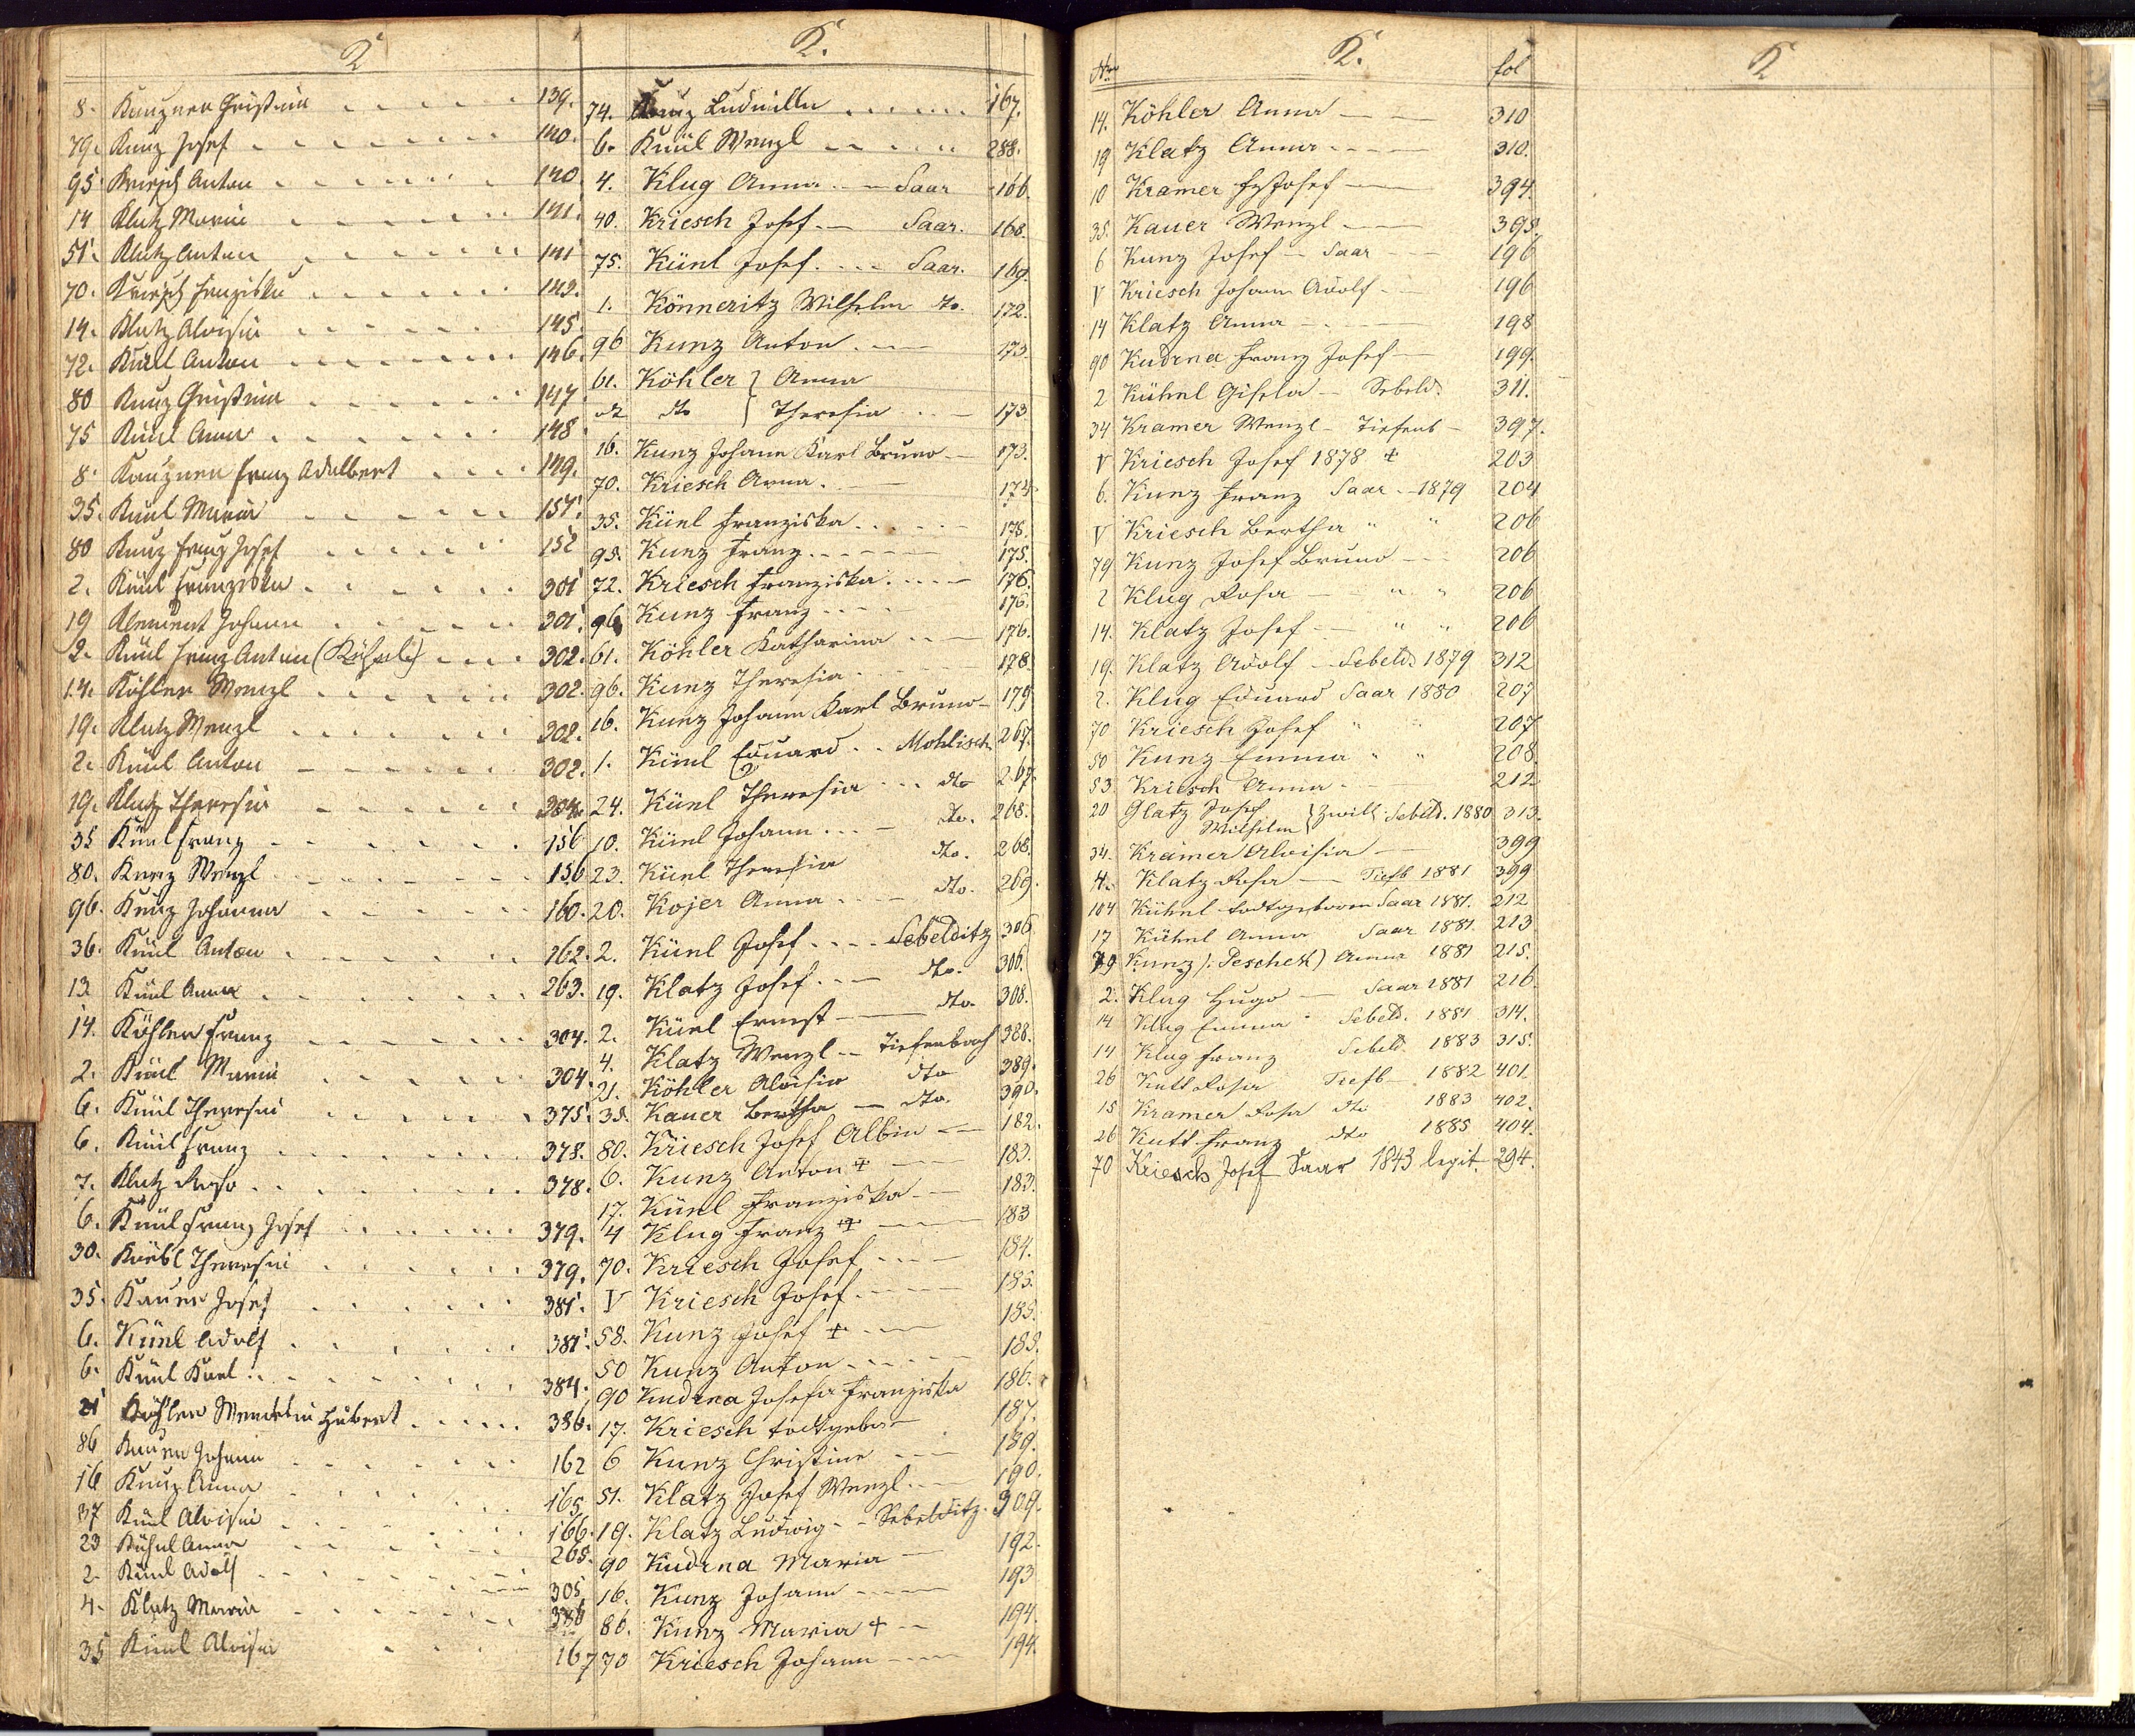 K
8. Kauzner Christina 139.
79. Kunz Josef 140.
95 Kriesch Anton 140
14 Klatz Maria 141.
51. Klatz Anton 141
70. Kriesch Franziska 142.
14. Klatz Aloisia 145
72. Künl Anton 146.
80 Kunz Christina 147
75 Künl Anna 148
8. Kauzner Franz Adalbert 149.
35. Künl Maria 151.
80 Kunz Franz Josef 152
2. Künl Franziska 301
19 Klement Johann 301.
2. Künl Franz Anton (Kühnl) 302.
14. Köhler Wenzl 302.
19. Klatz Wenzl 302.
2. Künl Anton 302.
19. Klatz Theresia 304.
35 Künl Franz 156
80. Kunz Wenzl 156
96. Kunz Johanna 160.
36. Künl Anton 162.
13 Künl Anna 263.
14. Köhler Franz 304.
2. Künl Maria 304.
6. Künl Theresia 375.
6. Künl Franz 378.
7. Klatz Rosa 378.
6. Künl Franz Josef 379.
30. Theresia 379.
35. Kauer Josef 381.
6. Künl Adolf 381.
6. Künl Karl 384.
21 Köhler Wendelin Hubert 386.
86 Johann 162
16 Kunz Anna 165
37 Künl Aloisia 166.
23 Kühnl Anna 265.
2. Künl Adolf 305
4. Klatz Maria 386
35 Künl Aloisia 167
K.
74. Kunz Ludmilla 167.
6. Künl Wenzl 288.
4. Klug Anna Saar 166.
40. Kriesch Josef Saar. 168.
75. Künl Josef Saar. 169.
1. Könneritz Wilhelm dto. 172.
96 Kunz Anton 173.
61. Köhler } Anna
dto } Theresia 173
16. Kunz Johann Karl Bruno 173.
70. Kriesch Anna 174.
35. Künl Franziska 175.
95. Kunz Franz 175.
72. Kriesch Franziska 176.
96 Kunz Franz 176.
61. Köhler Katharina 176.
96. Kunz Theresia 178.
16. Kunz Johann Karl Bruno 179
1. Künl Eduard Mohlisch 267.
24. Künl Theresia dto 267.
10. Künl Johann dto. 268.
23. Künl Theresia dto. 268.
20. Kojer Anna dto. 269.
2. Künl Josef Sebelditz 306
19. Klatz Josef dto. 306.
2. Künl Ernst dto. 308.
4. Klatz Wenzl Tiefenbach 388.
21. Köhler Aloisia dto 389.
35. Kauer Bertha dto. 390.
80. Kriesch Josef Albin 182.
6. Kunz Anton + 183.
17. Künl Franziska 183.
4 Klug Franz + 183
70. Kriesch Josef 184.
V Kriesch Josef 185.
58. Kunz Josef + 185.
50 Kunz Anton 185.
90 Kudrna Josefa Franziska 186.
17. Kriesch todtgebor 187.
6 Kunz Christine 189.
51. Klatz Josef Wenzl 190.
19. Klatz Ludwig Sebelditz. 309.
90 Kudrna Maria 192.
16. Kunz Johann 193
86. Kunz Maria + 194.
70 Kriesch Johann 194.
Nro K. fol
14. Köhler Anna 310
19 Klatz Anna 310.
10 Kramer Josef 394.
35. Kauer Wenzl 395.
6 Kunz Josef Saar 196
V Kriesch Johann Adolf 196
14 Klatz Anna 198
90 Kudrna Franz Josef 199.
2 Kühnl Gisela Sebeld. 311.
34 Kramer Wenzl Tiefenb 397.
V Kriesch Josef 1878 + 203
6. Kunz Franz Saar 1879 204
V Kriesch Bertha " " 206
79 Kunz Josef Bruno 206
2 Klug Rosa " " 206
14. Klatz Josef " " 206
19. Klatz Adolf Sebeld. 1879 312
2. Klug Eduard Saar 1880 207
70 Kriesch Josef " " 207
50 Kunz Emma " " 208.
53 Kriesch Anna 212.
20 Glatz Josef
Wilhelm } Zwill. Sebeld. 1880 313.
34. Kramer Aloisia 399
4. Klatz Rosa Tiefb 1881 399
104 Kühnl todtgeboren Saar 1881. 212
17 Kühnl Anna Saar 1881. 213
79 Kunz (: Peschek) Anna 1881 215.
2. Klug Hugo Saar 1881 216.
14 Klug Emma Sebeld. 1881 314.
14 Klug Franz Sebeld 1883 315.
26 Kutt Rosa Tiefb 1882 401.
15 Kramer Rosa dto 1883 402.
26 Kutt Franz dto 1885 404.
70 Kriesch Josef Saar 1843 legit. 294.
K